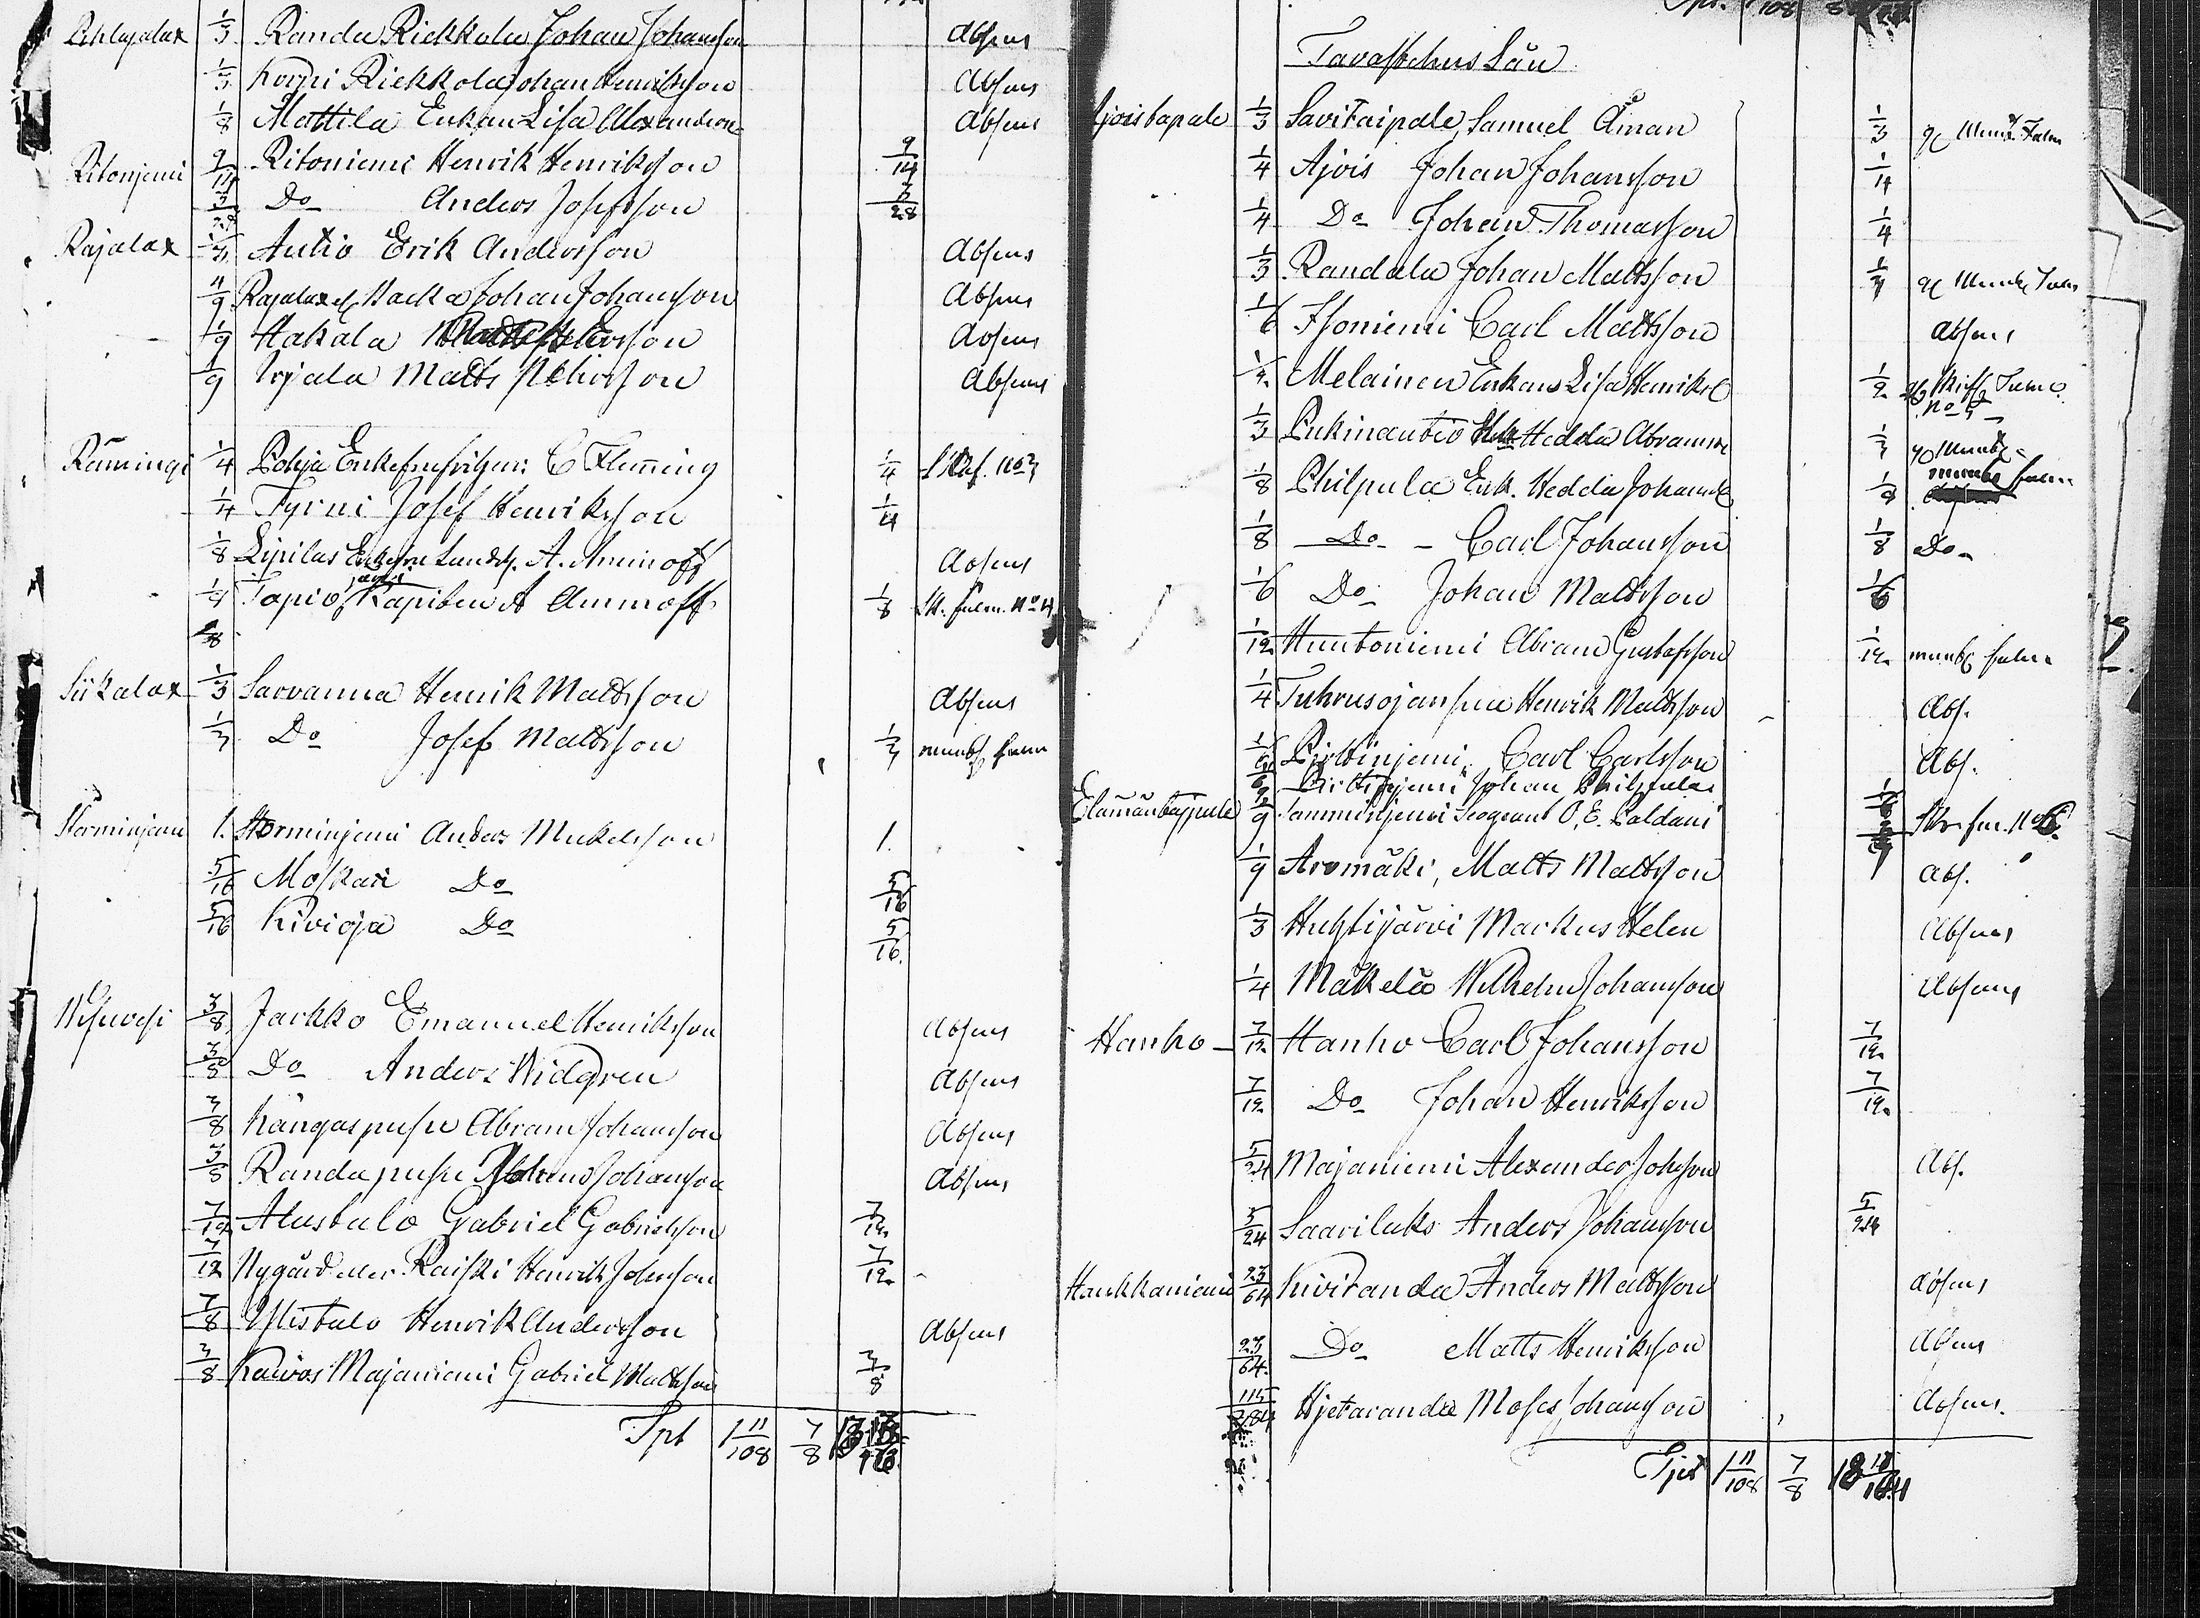 Pihlajalax 1/3 Randa Rickkola Johan Johansson Absens
1/3 Korpi Rickkola Johan Henriksson Absens
1/8 Mattila Enkan Lisa Alexandersd Absens
Ritonjemi 9/14 Ritoniemi Henrik Henriksson 9/14
3/28 Do Anders Josefsson 3/28
Rajalax Autio Erik Andersson Absens
4/9 Rajalax el. Backa Johan Johansson Absens
1/9 Hakala Absens
1/9 Irjala Matts Absens
Rämingi 1/4 Pohja Enkefru Friherr: C Fleming 1/4 Skrf. No 3
1/4 Tyrni Josef Henriksson 1/4
1/8 Lipilas Enkefru Landsk. A. Aminoff Absens
1/4 Tapio, Kapiten A Aminoff 1/8 Sk. fulm. No 4
1/8
Siikalax 1/3 Sarvanna Henrik Mattsson Absens
1/3 Do Josef Mattsson 1/3 muntl fulm
Storminjemi 1. Storminjemi Anders Mickelsson 1.
5/16 Moskari Do 5/16
5/16 Kivioja Do 5/16
Wesivesi 3/8 Jarkko Emanuel Henriksson Absens
3/8 Do Anders Widgren Absens
3/8 Kangaspuhu Abram Johansson Absens
3/8 Randapuhu Johansson Absens
7/12 Alustalo Gabriel Gabrielsson 7/12
7/12 Nygård eller Raiski Henrik Johansson 7/12
7/8 Ylistalo Henrik Andersson Absens
3/8 Kaivos Majaniemi Gabriel Mattsson 3/8
Tpt 1 11/108 7/8
Tavastehus Län
Ajoistapale 1/3 Savitaipale, Samuel Åman 1/3 gm Muntl. Fulm
1/4 Ajois Johan Johansson 1/4
1/4 Do Johan Thomasson 1/4
1/3 Randala Johan Mattsson 1/3 gm Muntl Fulm
1/6 Isoniemi Carl Mattsson Absens
1/2 Melainen Enkans Lisa Henriksd 1/2 gm Skriftl Fulm No 5
1/3 Pukinautio Hedda Abramsd 1/3 gm Muntl
1/8 Philpula Enk. Hedda Johansd 1/8 muntl fulm
1/8 Do Carl Johansson 1/8 Do
1/6 Do Johan Mattsson 1/6
1/12 Huntoniemi Abram Gustafsson 1/12 muntl fulm
1/4 Tuhrusojansuu Henrik Mattsson Abs.
1/6 Pirttinjemi Carl Carlsson Abs.
Pirttinjemi Johan Philpula
Elämäntaipale Lamminjemi Sergeant O. E. Paldani Skr. fm. No 6
1/9 Aromäki, Matts Mattsson Abs.
1/3 Huhtijärvi Markus Helen Absens
1/4 Mäkelä Wilhelm Johansson Absens
Hanho 7/12 Hanho Carl Johansson 7/12
7/12 Do Johan Henriksson 7/12
5/24 Majaniemi Alexander Johansson Abs.
5/24 Saariluks Anders Johansson 5/24
Haukkaniemi 23/64 Kiviranda Anders Mattsson Absens
23/64 Do Matts Henriksson Absens
115/384 Hjetaranda Moses Johansson Absens.
Tpt 1 11/108 7/8